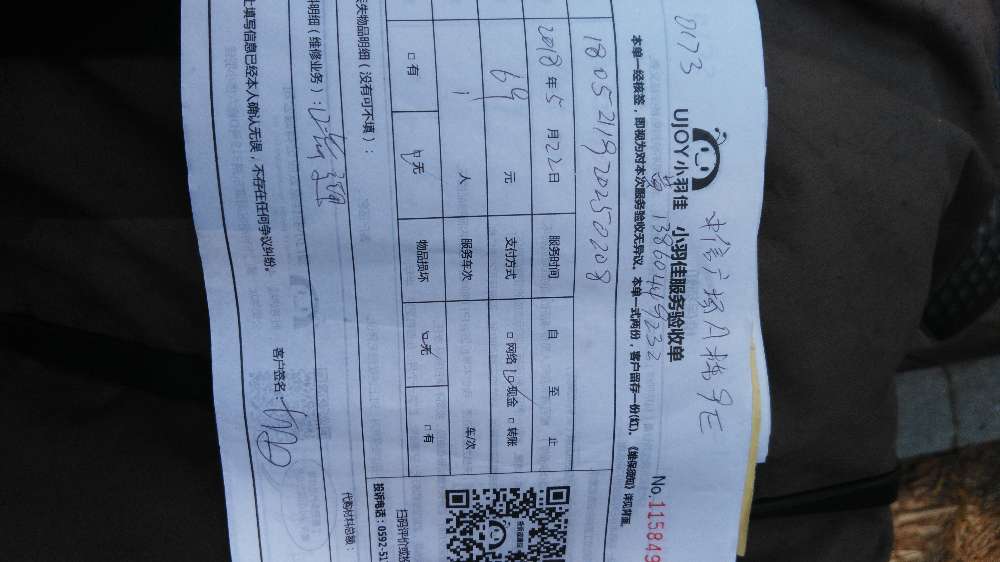 0173
中信广场A栋9E
UJOY小羽佳 小羽佳服务验收单
黄 13860449232
No.115849
本单一经核签，即视为对本次服务验收无异议。本单一式两份，客户留存一份(红)。《维保须知》详见背面。
180521192025020208
2018年5月22日 服务时间 自 至 止
69 元 支付方式 □网络 ☑现金 □转账
1 人 服务车次 车/次
□有 ☑无 物品损坏 ☑无 □有
丢失物品明细（没有可不填）：
扫码评价或投
投诉电话：0592-51
料明细（维修业务）：
代购材料总额：
上填写信息已经本人确认无误，不存在任何争议纠纷。
客户签名：